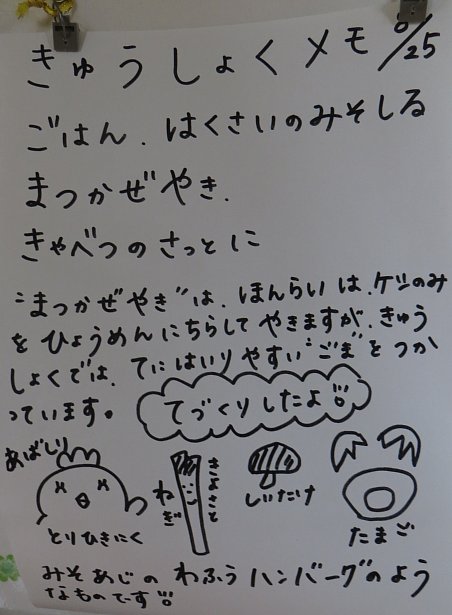 きゅうしょくメモ %25
ごはん.はくさいのみそしる
まつかぜやき.
きゃべつのさっとに
"まつかぜやき"は.ほんらいは.ケシのみ
をひょうめんにちらしてやきますが.きゅう
しょくでは.てにはいりやすい"ごま"をつか
っています。
てづくりしたよ!!
あばしり
とりひきにく
きよさと
ねぎ
しいたけ
たまご
みそあじのわふうハンバーグのよう
なものです!!